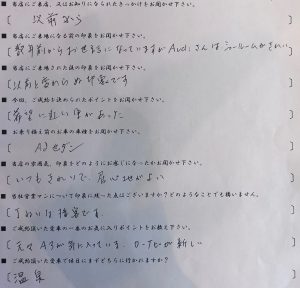 ■ 当店にご来店、又はお知りになられたきっかけをお聞かせ下さい。
[ 以前から
■ 当店にご来場になる前の印象をお聞かせ下さい。
[ 数年前からお世話になっていますが Audiさんはショールームがきれい
■ 当店にご来場された後の印象をお聞かせ下さい。
[ 以前と変わらぬ印象です
■ 今回、ご成約を決められたポイントをお聞かせ下さい。
[ 希望に近い車があった
■ お乗り換え前のお車の車種をお聞かせ下さい。
[ A3セダン
■ 当店の雰囲気、印象をどのようにお感じになったかお聞かせ下さい。
[ いつもきれいで、居心地がよい
■ 当社営業マンについて印象に残った点はございますか?どのようなことでも構いません。
[ ていねいな接客です
■ ご成約頂いた愛車の一番のお気に入りポイントをお教え下さい。
[ 元々A3が気に入っている、ロータが新しい
■ ご成約頂いた愛車で休日にまずどちらに行かれますか?
[ 温泉